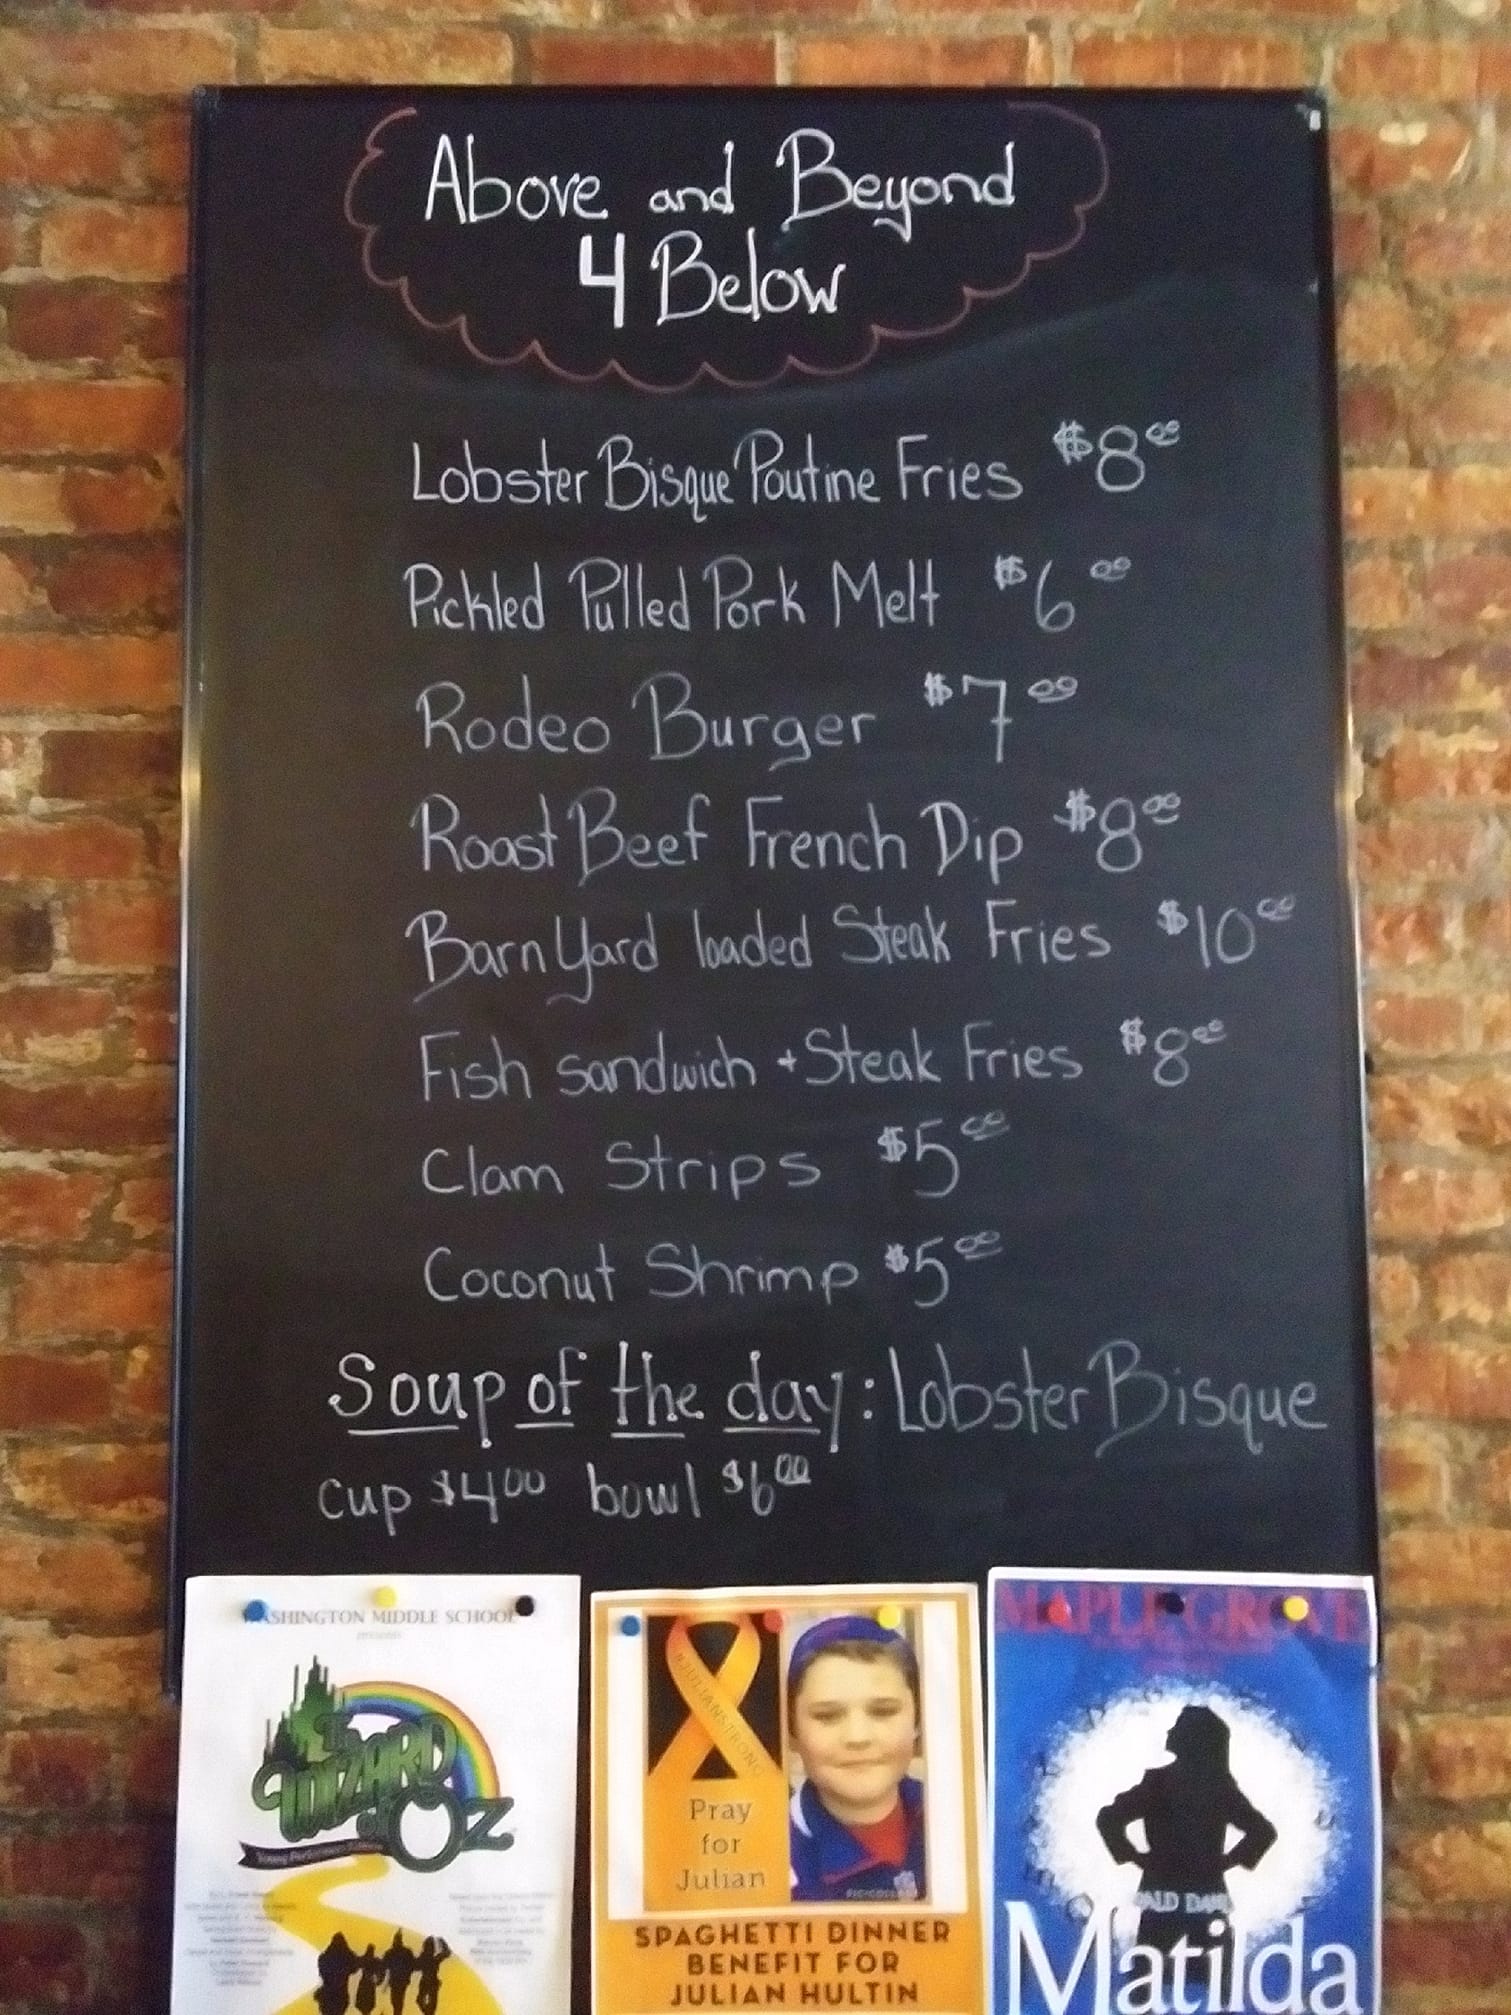 Above and Beyond
4 Below
Lobster Bisque Poutine Fries $8.00
Pickled Pulled Pork Melt $6.00
Rodeo Burger $7.00
Roast Beef French Dip $8.00
BarnYard loaded Steak Fries $10.00
Fish sandwich + Steak Fries $8.00
Clam Strips $5.00
Coconut Shrimp $5.00
Soup of the day: Lobster Bisque
cup $4.00 bowl $6.00
WASHINGTON MIDDLE SCHOOL
PRESENTS
The
WIZARD
of OZ
Young Performers' Edition
#JULIANSTRONG
Pray
for
Julian
SPAGHETTI DINNER
BENEFIT FOR
JULIAN HULTIN
MAPLE GROVE
Matilda